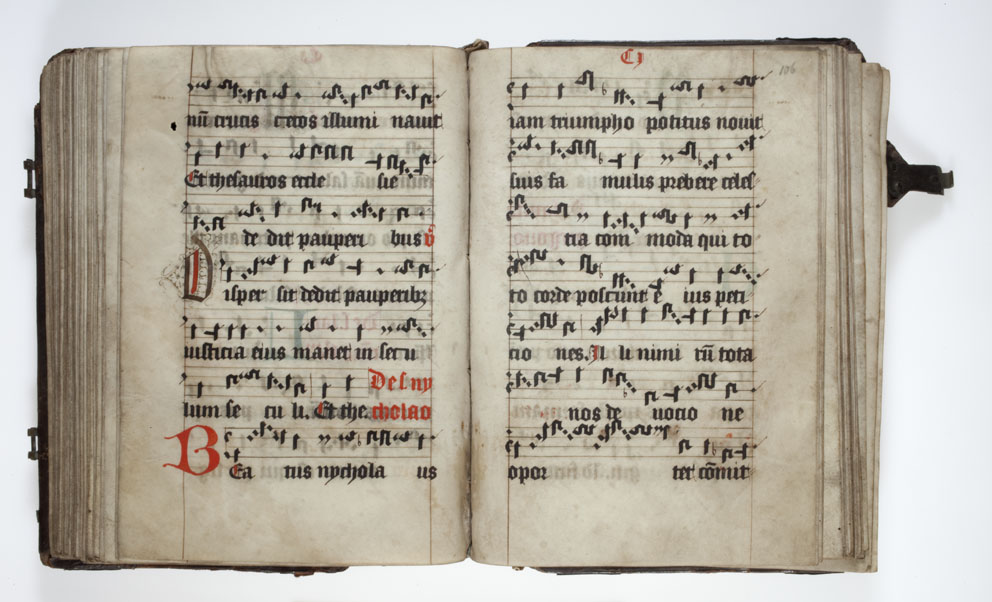 nū crucis cecos illumi nauit
Et thesauros eccle sie
de dit pauperi bus v̄
Disper sit dedit pauperibꝫ
iusticia eius manet in secu
lum se cu li. Et the. De sn̄y
cholao
BEa tus nychola us
Cj
106
iam triumpho potitus nouit
suis fa mulis prebere celes
tia com moda qui to
to corde poscunt e ius peti
cio nes. Il li nimi rū tota
nos de uocio ne
opor tet cōmit